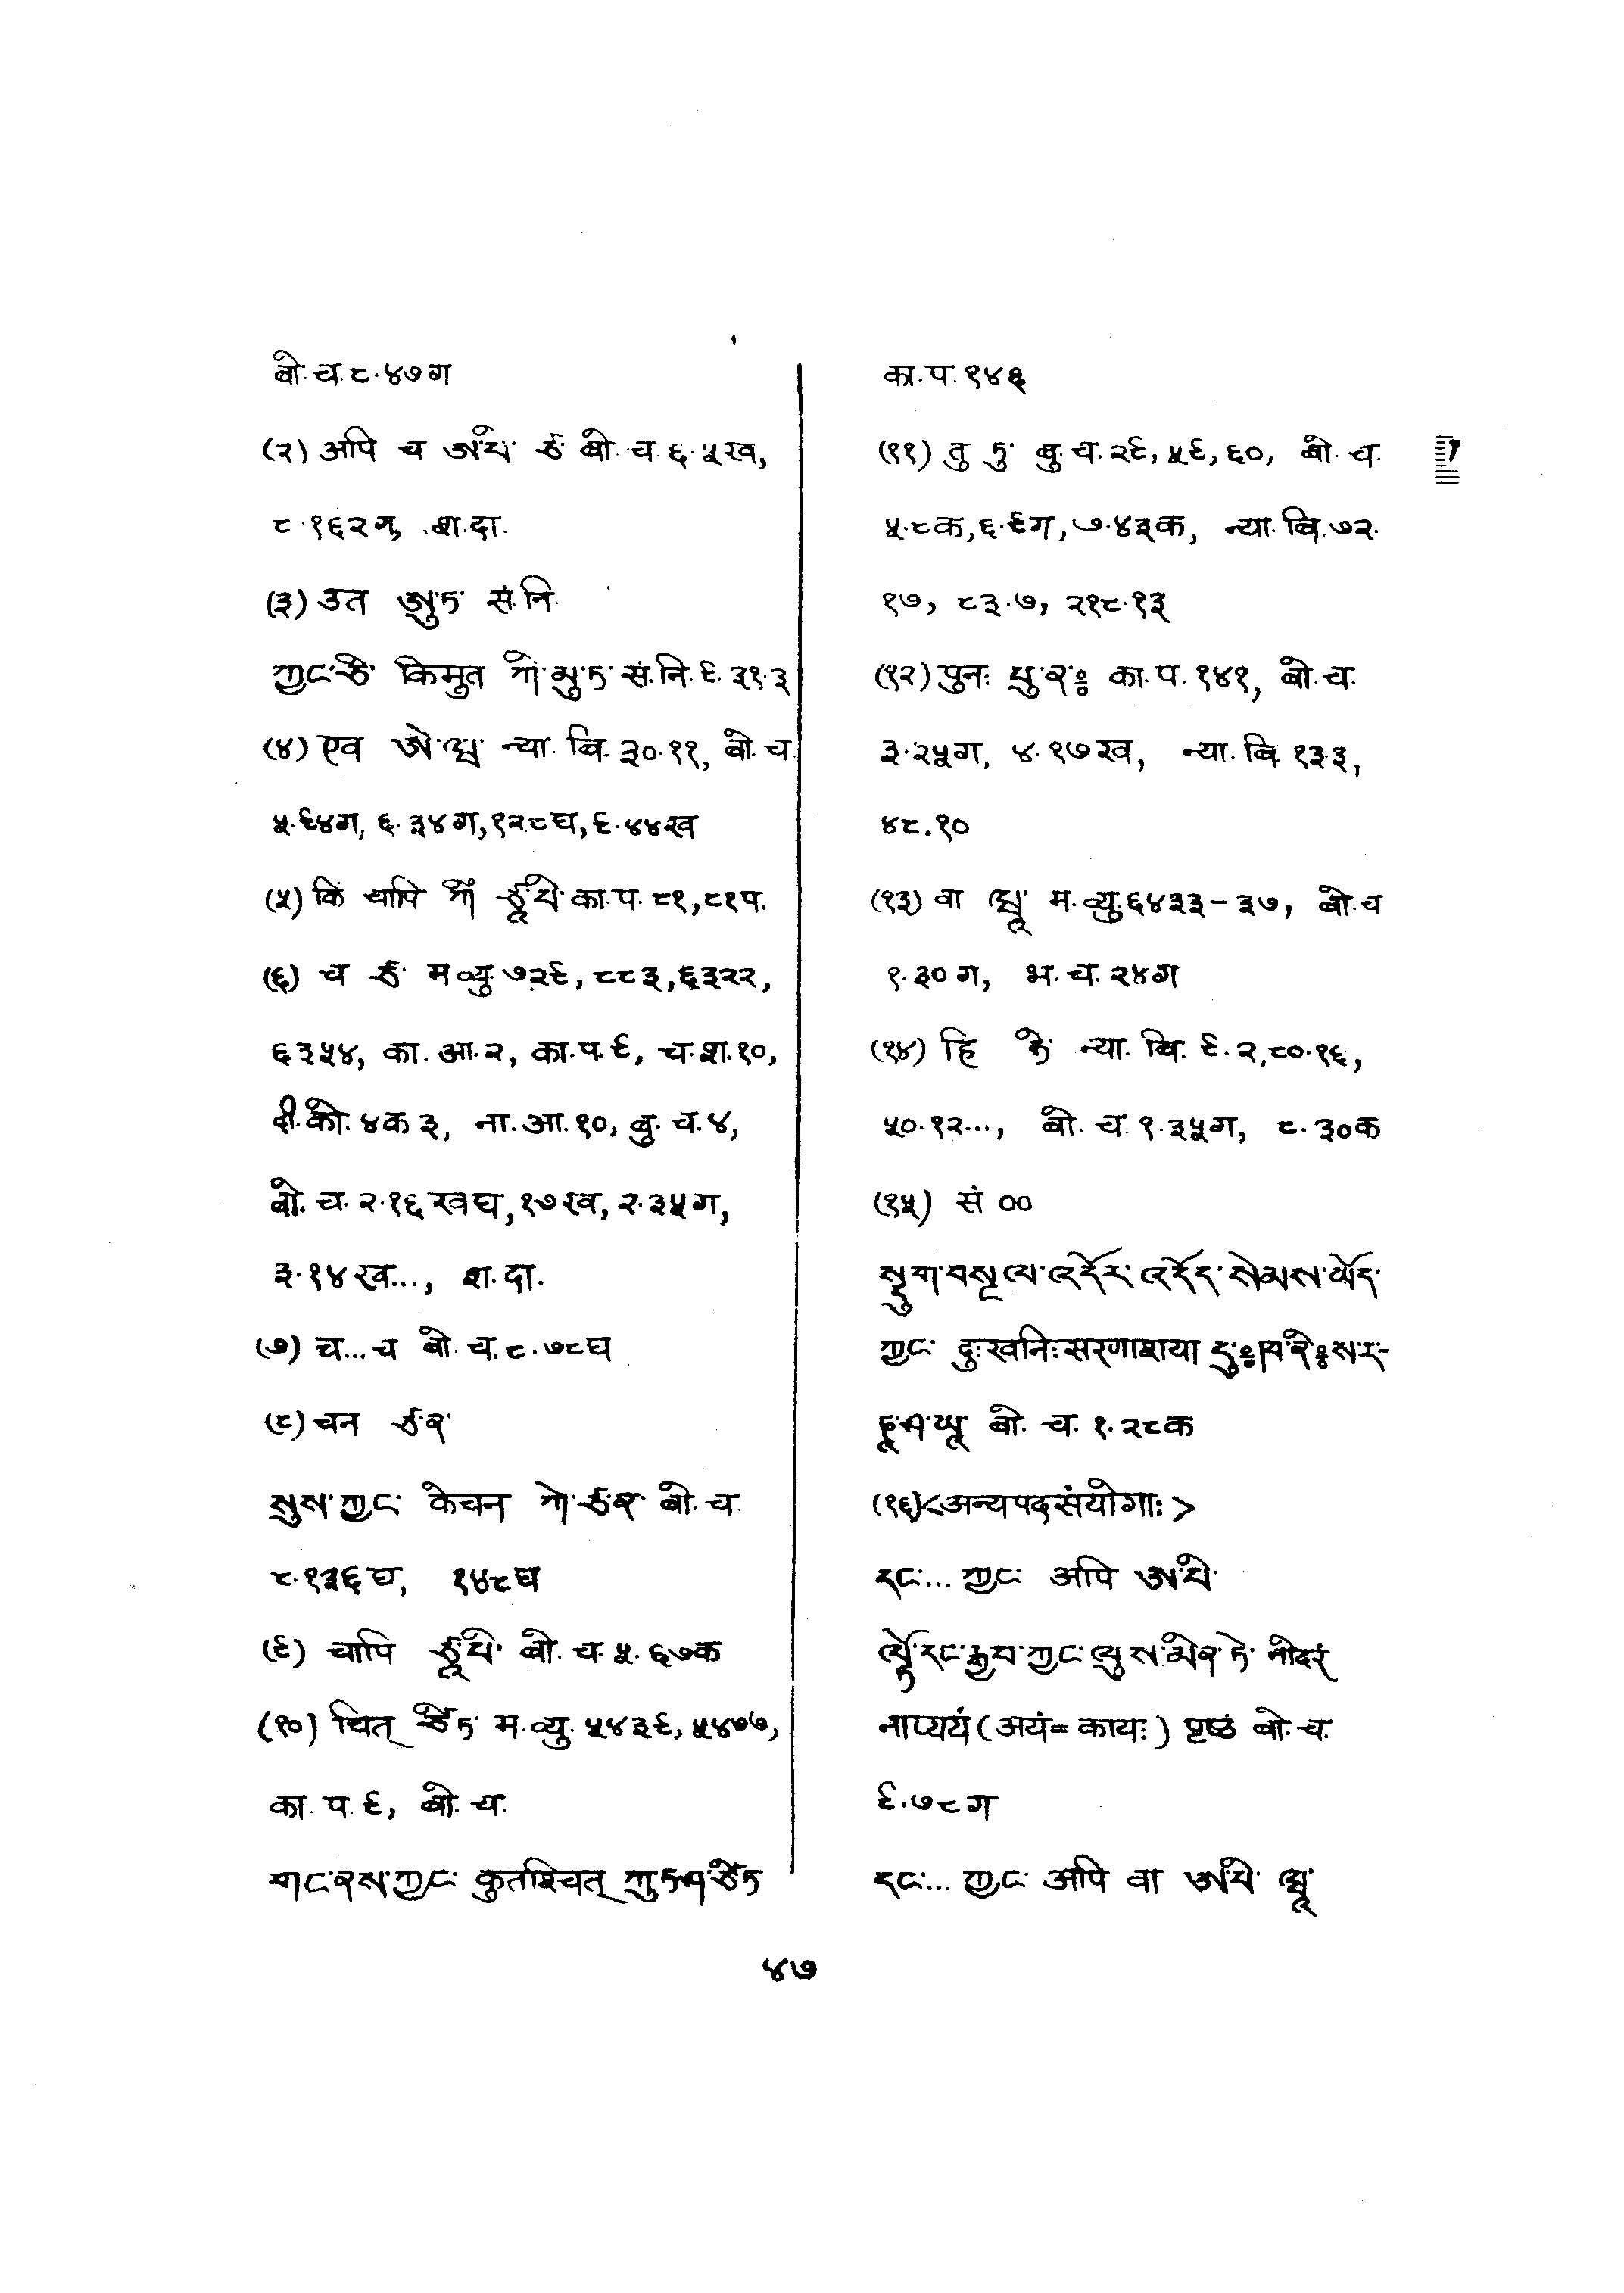 बो.च.८.४७ग
(२) अपि च ཨ་པི་ ཙ बो.च.६.५ख,
८.१६२ग, श.दा.
(३) उत ཨུ་ཏ་ सं.नि.
ཀྱང་ཅི་ किमुत ཀི་མུ་ཏ་ सं.नि.६.३१.३
(४) एव ཨེ་ཝ་ न्या.बि.३०.११, बो.च.
५.६४ग, ६.३४ग, १२८घ, ६.४४ख
(५) किं चापि ཀིཾ་ ཙཱ་པི་ का.प.८१, ८१प.
(६) च ཙ་ म.व्यु.७२९, ८८३, ६३२२,
६३५४, का.आ.२, का.प.९, च.श.१०,
दी.को.४क३, ना.आ.१०, बु.च.४,
बो.च.२.१६खघ, १७ख, २.३५ग,
३.१४ख..., श.दा.
(७) च...च बो.च.८.७८घ
(८) चन ཙ་ན་
སུས་ཀྱང་ केचन ཀེ་ཙ་ན་ बो.च.
८.१३६घ, १४८घ
(९) चापि ཙཱ་པི་ बो.च.५.६७क
(१०) चित् ཙིཏ་ म.व्यु.५४३९, ५४७७,
का.प.९, बो.च.
གང་ནས་ཀྱང་ कुतश्चित् ཀུ་ཏཤྩིཏ
का.प.१४६
(११) तु ཏུ་ बु.च.२९, ५९, ६०, बो.च.
५.८क, ६.९ग, ७.४३क, न्या.बि.७२.
१७, ८३.७, २१८.१३
(१२) पुनः པུ་ནཿ का.प.१४१, बो.च.
३.२५ग, ४.१७ख, न्या.बि.१३.३,
४८.१०
(१३) वा ཝཱ་ म.व्यु.६४३३-३७, बो.च.
१.३०ग, भ.च.२४ग
(१४) हि ཧི་ न्या.बि.९.२, ८०.१६,
५०.१२..., बो.च.१.३५ग, ८.३०क
(१५) सं ००
སྡུག་བསྔལ་འདོར་འདོད་སེམས་ཡོད་
ཀྱང་ दुःखनिःसरणाशया དུཿཁ་ནིཿས་ར-
ཎཱ་ཤ་ཡཱ बो.च.१.२८क
(१६) <अन्यपदसंयोगाः>
དང་... ཀྱང་ अपि ཨ་པི་
ལྟོ་དང་རྒྱབ་ཀྱང་ལུས་མིན་ཏེ་ नोदरं
नाप्ययं (अयं = कायः) पृष्ठं बो.च.
९.७८ग
དང་... ཀྱང་ अपि वा ཨ་པི་ ཝཱ་
४७